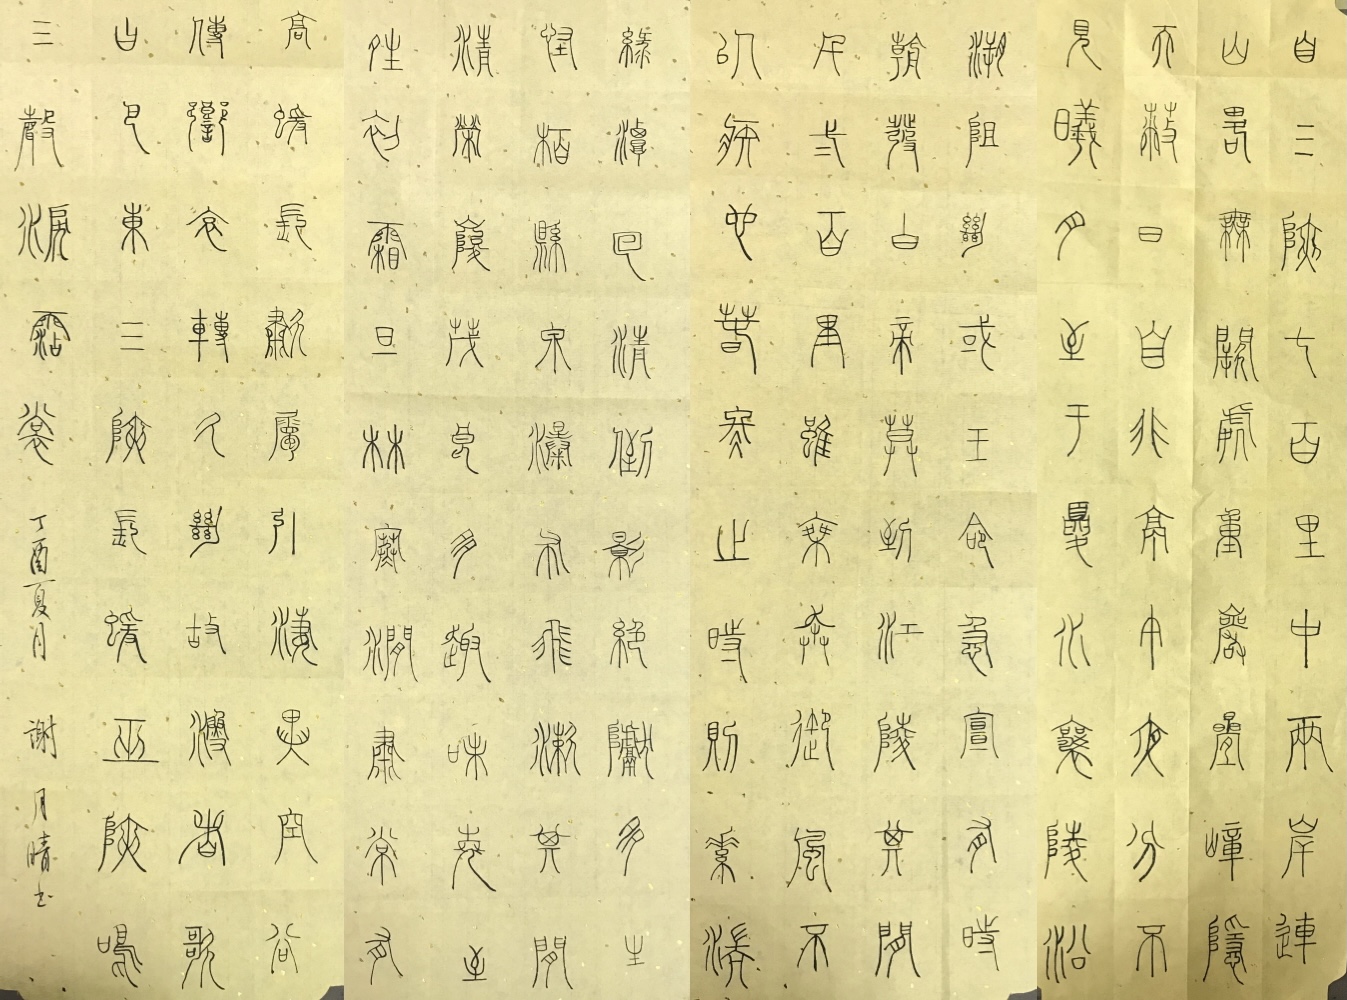 自三陝七百里中兩岸連
山畧無闕處重巖疊嶂隱
天蔽日自非亭午夜分不
見曦月至于夏水襄陵沿
溯阻絕或王命急宣有時
朝發白帝莫到江陵其間
千二百里雖乘奔御風不
以疾也春冬之時則素湍
綠潭回清倒影絕巘多生
怪柏縣泉瀑布飛漱其間
清榮峻茂良多趣味每至
晴初霜旦林寒澗肅常有
高猨長嘯屬引淒異空谷
傳響哀轉久絕故漁者歌
曰巴東三陝長猨巫陝鳴
三聲淚霑裳 丁酉夏月 謝月晴書